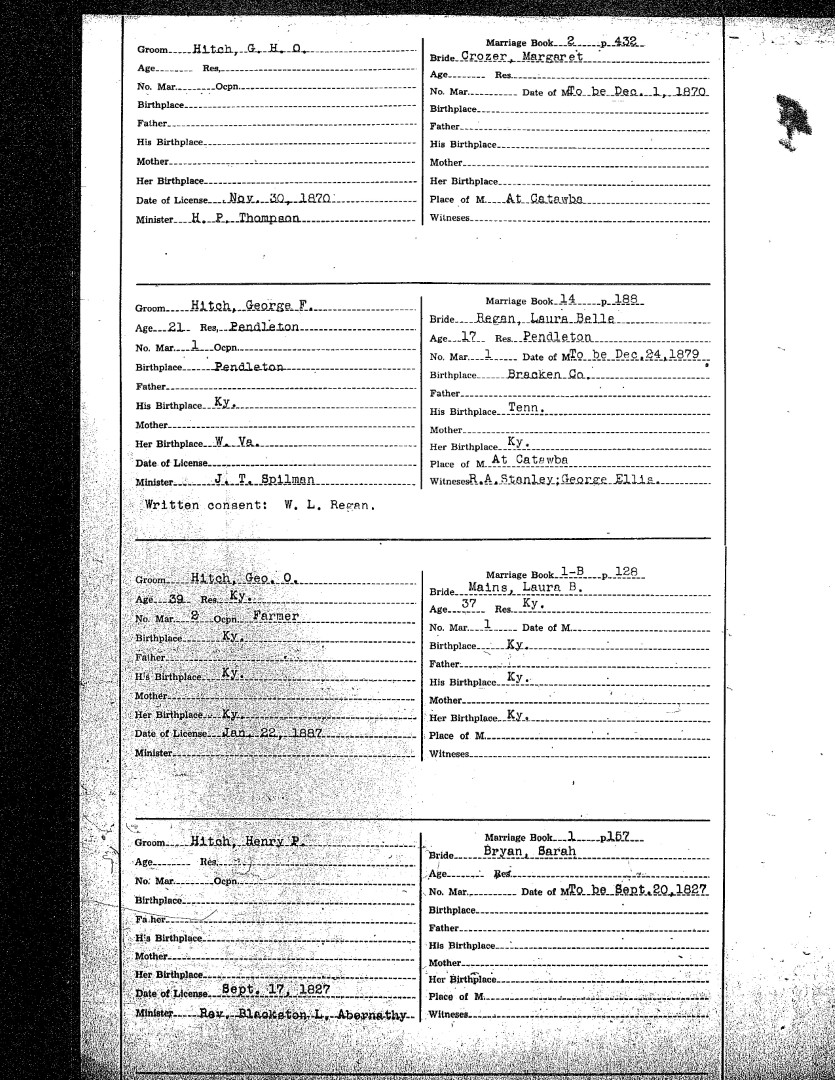 Groom Hitch, G. H. O.
Age Res.
No. Mar. Ocpn.
Birthplace
Father
His Birthplace
Mother
Her Birthplace
Date of License Nov. 30, 1870
Minister H. P. Thompson
Marriage Book 2 p. 432
Bride Crozer, Margaret
Age Res.
No. Mar. Date of M. To be Dec. 1, 1870
Birthplace
Father
His Birthplace
Mother
Her Birthplace
Place of M. At Catawba
Witneses
Groom Hitch, George F.
Age 21 Res. Pendleton
No. Mar. 1 Ocpn.
Birthplace Pendleton
Father
His Birthplace Ky.
Mother
Her Birthplace W. Va.
Date of License
Minister J. T. Spilman
Written consent: W. L. Regan.
Marriage Book 14 p. 188
Bride Regan, Laura Belle
Age 17 Res. Pendleton
No. Mar. 1 Date of M. To be Dec.24,1879
Birthplace Bracken Co.
Father
His Birthplace Tenn.
Mother
Her Birthplace Ky.
Place of M. At Catawba
Witneses R.A.Stanley;George Ellis.
Groom Hitch, Geo. O.
Age 39 Res. Ky.
No. Mar. 2 Ocpn. Farmer
Birthplace Ky.
Father
His Birthplace Ky.
Mother
Her Birthplace Ky.
Date of License Jan. 22, 1887
Minister
Marriage Book 1-B p. 128
Bride Mains, Laura B.
Age 37 Res. Ky.
No. Mar. 1 Date of M.
Birthplace Ky.
Father
His Birthplace Ky.
Mother
Her Birthplace Ky.
Place of M.
Witneses
Groom Hitch, Henry P.
Age Res.
No. Mar. Ocpn.
Birthplace
Father
His Birthplace
Mother
Her Birthplace
Date of License Sept. 17, 1827
Minister Rev. Blackston L. Abernathy
Marriage Book 1 p157
Bride Bryan, Sarah
Age Res.
No. Mar. Date of M. To be Sept.20,1827
Birthplace
Father
His Birthplace
Mother
Her Birthplace
Place of M.
Witneses